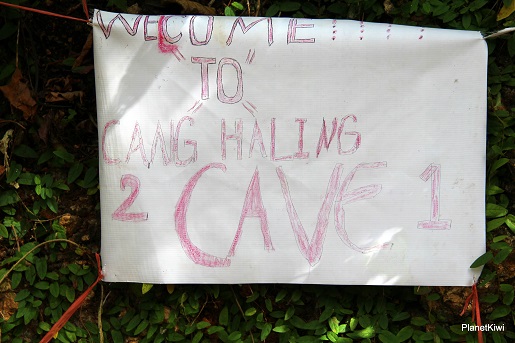 WELCOME ! ! ! ! !
TO
CANG HALING
2 CAVE 1
PlanetKiwi